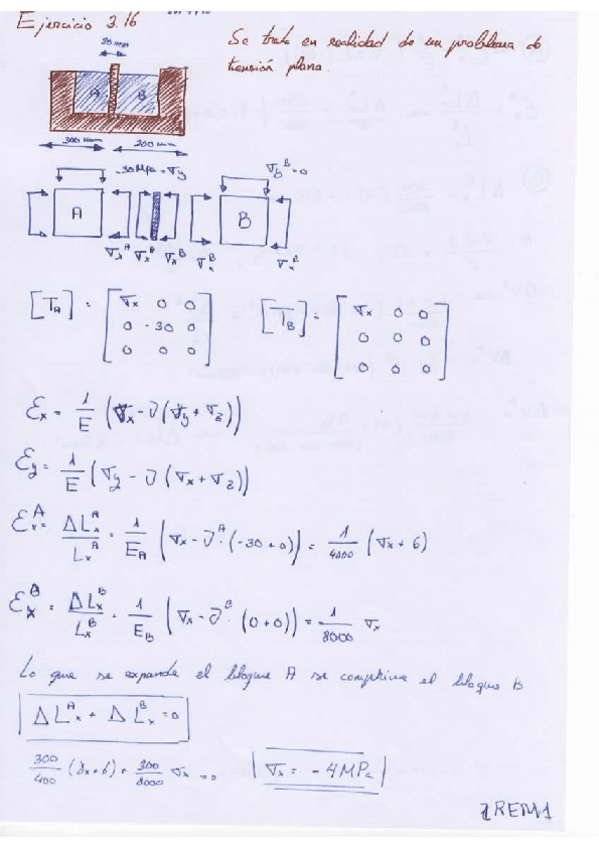 Ejercicio 3.16
Se trata en realidad de un problema de
tensión plana.
20 mm
A B
300 mm 200 mm
-30 MPa = σy σy^B = 0
A B
σx^A σx^B σx^B σx^B σx^B
[T_A] = [σx 0 0
0 -30 0
0 0 0]
[T_B] = [σx 0 0
0 0 0
0 0 0]
εx = 1/E (σx - ν(σy + σz))
εy = 1/E (σy - ν(σx + σz))
εx^A = ΔLx^A/Lx^A = 1/E_A (σx - ν^A·(-30+0)) = 1/4000 (σx + 6)
εx^B = ΔLx^B/Lx^B = 1/E_B (σx - ν^B·(0+0)) = 1/8000 σx
Lo que se expande el bloque A se comprime el bloque B
ΔLx^A + ΔLx^B = 0
300/400 (σx+6) + 300/8000 σx = 0 σx = -4 MPa
1REM1